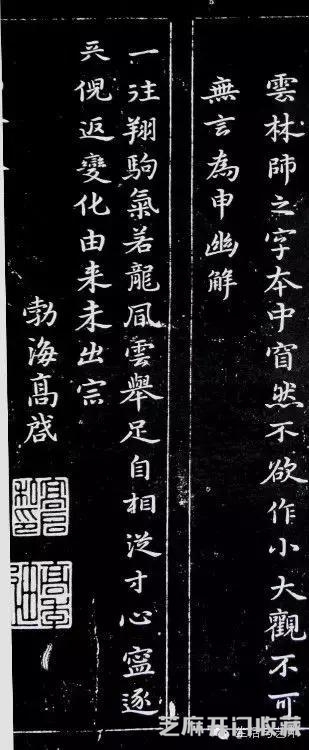 雲林師之字本中窅然不欲作小大觀不可
無言為申幽解
一注翔駒氣若龍凬雲舉足自相從才心寍逐
兲倪返變化由来未出宗
勃海高啓
芝麻开门收藏